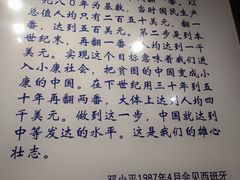 九八〇年为基数,当时国民生产
总值人均只有二百五十美元,翻一
番,达到五百美元。第二步是到本
世纪末,再翻一番,人均达到一千
美元。实现这个目标意味着我们进
入小康社会,把贫困的中国变成小
康的中国。在下世纪用三十年到五
十年再翻两番,大体上达到人均四
千美元。做到这一步,中国就达到
中等发达的水平。这是我们的雄心
壮志。
邓小平1987年4月会见西班牙